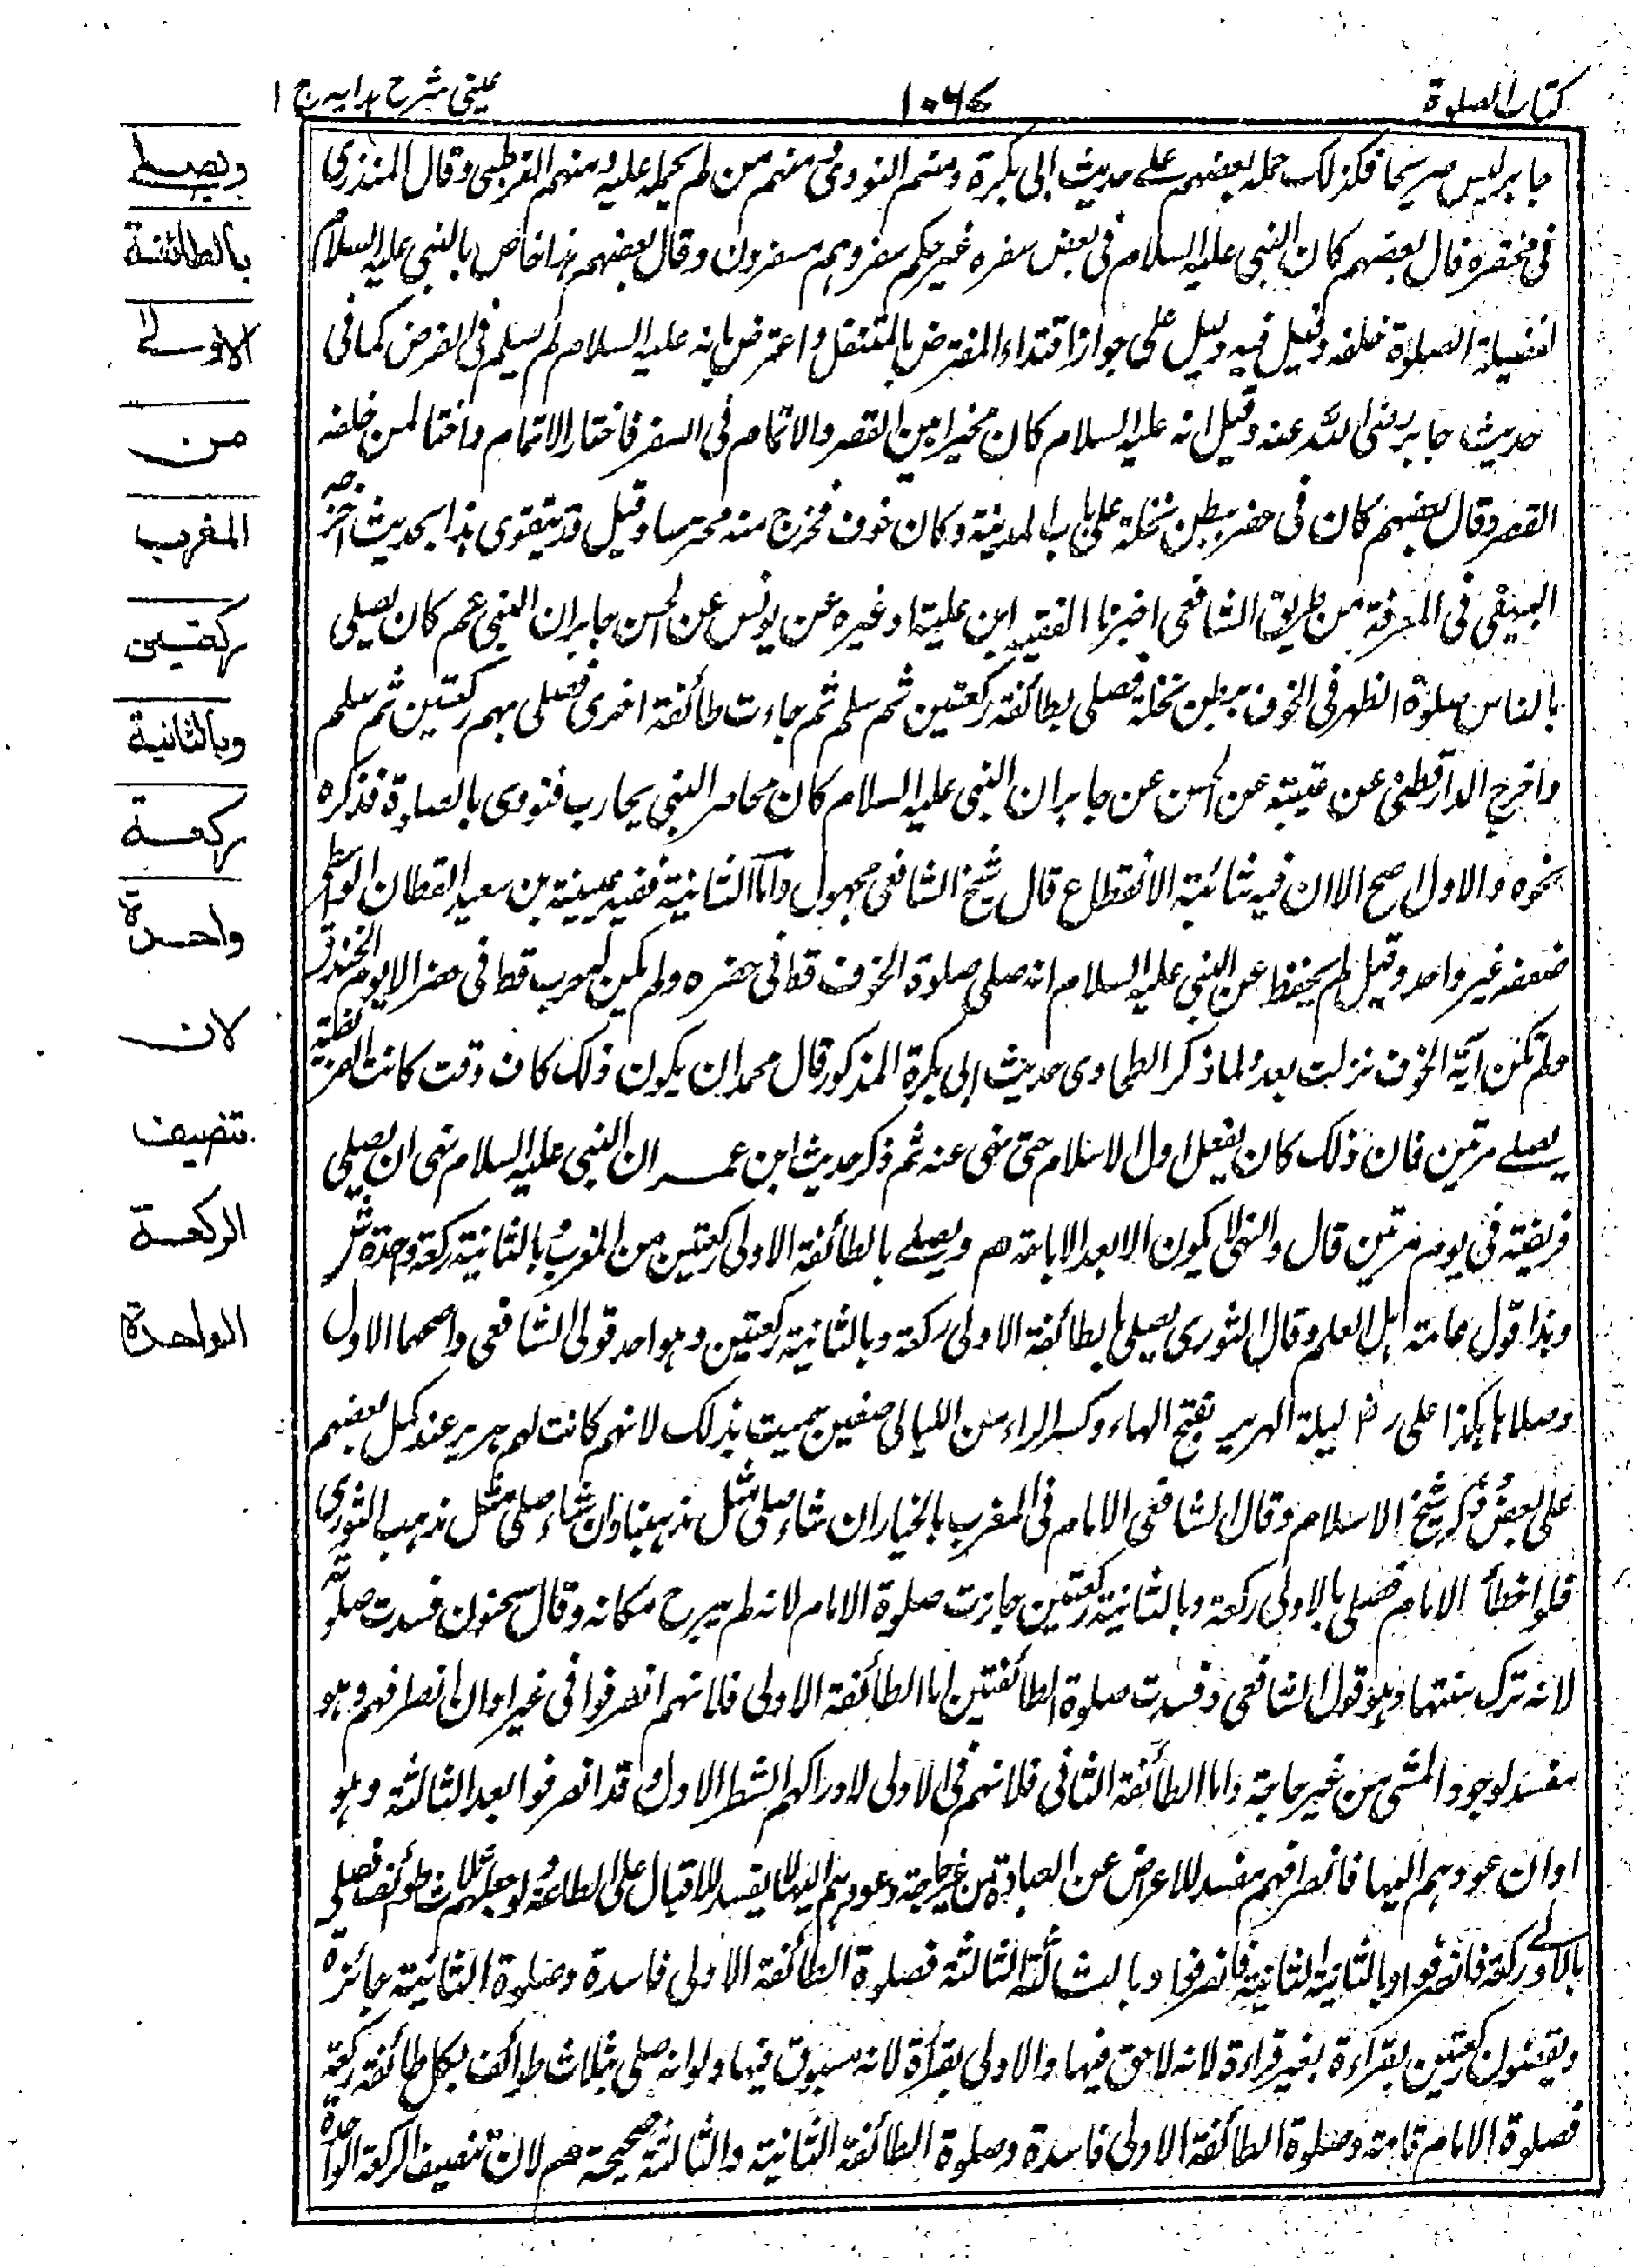 كتاب الصلوة
١٠٧٦
عينى شرح هدايه ج ١
جابر ليس صريحا فكذلك حمله بعضهم على حديث ابى بكرة ومنهم النووى ومنهم من لم يحمله عليه ومنهم القرطبى وقال المنذرى
فى مختصره قال بعضهم كان النبى عليه السلام فى بعض سفره غير حكم سفر وهم مسفرون وقال بعضهم هذا خاص بالنبى عليه السلام
لفضيلة الصلوة خلفه وقيل فيه دليل على جواز اقتداء المفترض بالمتنفل واعترض بانه عليه السلام لم يسلم فى الفرض كما فى
حديث جابر رضى الله عنه وقيل انه عليه السلام كان مخيرا بين القصر والاتمام فى السفر فاختار الاتمام واختا لمن خلفه
القصر وقال بعضهم كان فى حضر ببطن نخلة على باب المدينة وكان خوف فخرج منه محترسا وقيل قد يتقوى هذا بحديث اخرجه
البيهقى فى المعرفة من طريق الشافعى اخبرنا الفقيه ابن علية او غيره عن يونس عن الحسن جابر ان النبى عم كان يصلى
بالناس صلوة الظهر فى الخوف ببطن نخلة فصلى بطائفة ركعتين ثم سلم ثم جاءت طائفة اخرى فصلى بهم ركعتين ثم سلم
واخرج الدارقطنى عن عنبسة عن الحسن عن جابر ان النبى عليه السلام كان محاصر النبى يحارب فنودى بالصلوة فذكره
نحوه والاول اصح الا ان فيه شائبة الانقطاع قال شيخ الشافعى مجهول واما الثانية ففيه عيينية بن سعيد القطان الواسطى
ضعفه غير واحد وقيل لم يحفظ عن النبى عليه السلام انه صلى صلوة الخوف قط فى حضره ولم يكن له حرب قط فى حضر الا يوم الخندق
ولم تكن آية الخوف نزلت بعد ولما ذكر الطحاوى حديث ابى بكرة المذكور قال محمد ان يكون ذلك كان وقت كانت الفريضة
يصلى مرتين فان ذلك كان يفعل اول الاسلام حتى نهى عنه ثم ذكر حديث ابن عمر ان النبى عليه السلام نهى ان يصلى
فريضة فى يوم مرتين قال والنهى لا يكون الا بعد الاباحة هم ويصلى بالطائفة الاولى ركعتين من المغرب وبالثانية ركعة واحدة ش
وهذا قول عامة اهل العلم وقال الثورى يصلى بالطائفة الاولى ركعة وبالثانية ركعتين وهو احد قولى الشافعى واصحهما الاول
وصلاها هكذا على رض ليلة الهرير بفتح الهاء وكسر الراء من الليالى صفين سميت بذلك لانهم كانت لهم هرير عند حمل بعضهم
على بعض ذكره شيخ الاسلام وقال الشافعى الامام فى المغرب بالخيار ان شاء صلى مثل مذهبنا وان شاء صلى مثل مذهب الثورى
فلو اخطأ الامام فصلى بالاولى ركعة وبالثانية ركعتين جازت صلوة الامام لانه لم يبرح مكانه وقال سحنون فسدت صلوته
لانه ترك سنتها وهو قول الشافعى وفسدت صلوة الطائفتين اما الطائفة الاولى فلانهم انصرفوا فى غير اوان انصرافهم وهو
مفسد لوجود المشى من غير حاجة واما الطائفة الثانى فلانهم فى الاولى لادراكهم الشطر الاول وقد انصرفوا بعد الثالثة وهو
اوان عودهم اليها فانصرافهم مفسد للاعراض عن العبادة من غير حاجة وعودهم اليها لا يفسد للاقبال على الطاعة ولو جعلهم ثلاث طوائف فصلى
بالاولى ركعة فانصرفوا وبالثانية الثانية فانصرفوا وبالثالثة الثالثة فصلوة الطائفة الاولى فاسدة وصلوة الثانية جائزة
ويقضون ركعتين بقراءة بغير قراءة لانه لاحق فيها والاولى بقرأة لانه مسبوق فيها ولو انه صلى بثلاث طوائف بكل طائفة ركعة
فصلوة الامام تامة وصلوة الطائفة الاولى فاسدة وصلوة الطائفة الثانية والثالثة صحيحة هم لان تنصيف الركعة الواحدة
ويصلى
بالطائفة
الاولى
من
المغرب
ركعتين
وبالثانية
ركعة
واحدة
لان
تنصيف
الركعة
الواحدة